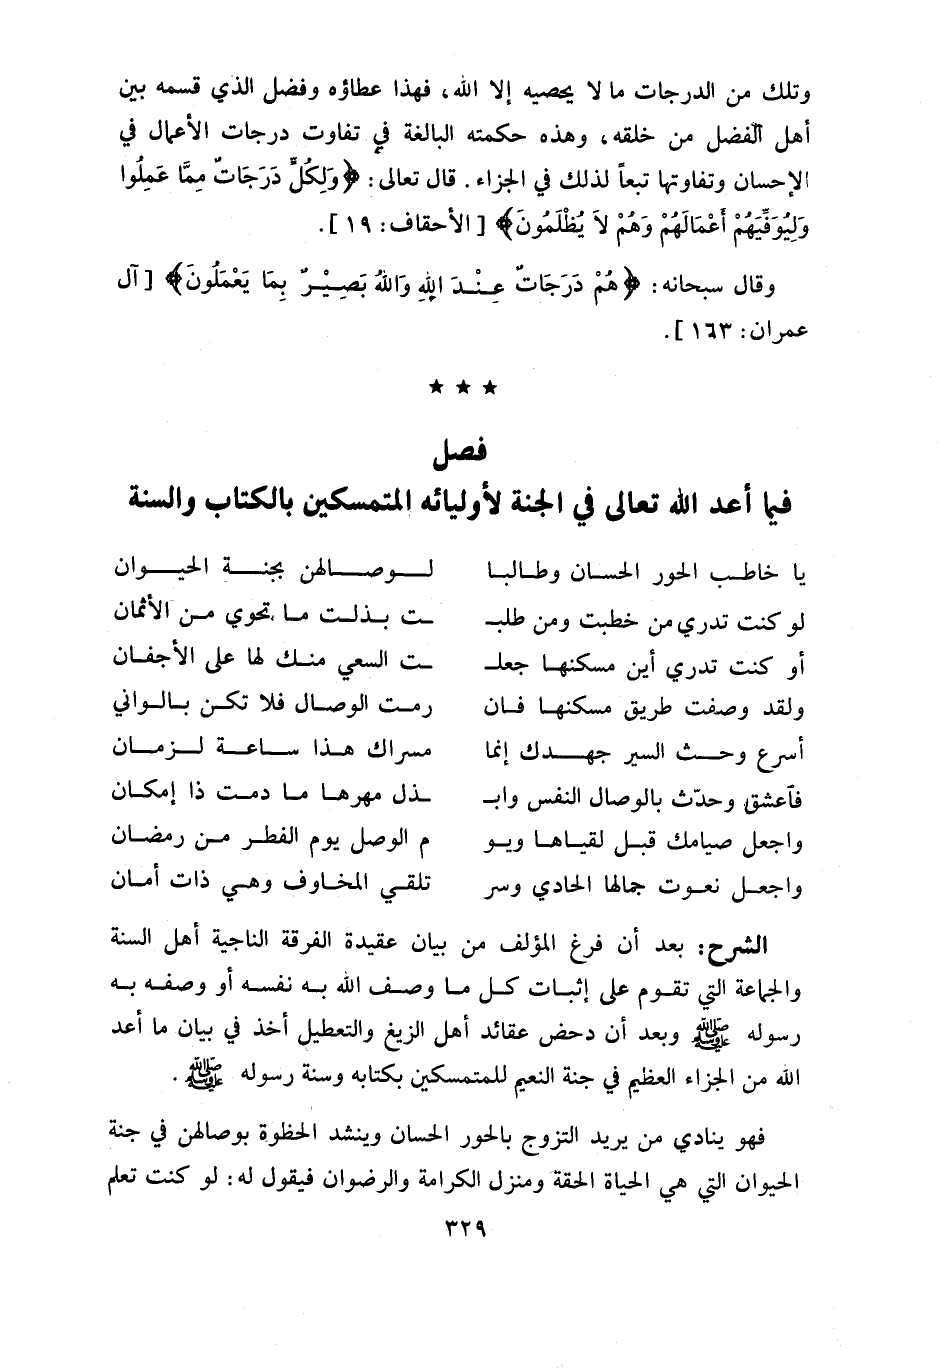 وتلك من الدرجات ما لا يحصيه إلا الله، فهذا عطاؤه وفضل الذي قسمه بين
أهل الفضل من خلقه، وهذه حكمته البالغة في تفاوت درجات الأعمال في
الإحسان وتفاوتها تبعاً لذلك في الجزاء. قال تعالى: ﴿وَلِكُلٍّ دَرَجَاتٌ مِمَّا عَمِلُوا
وَلِيُوَفِّيَهُمْ أَعْمَالَهُمْ وَهُمْ لاَ يُظْلَمُونَ﴾ [الأحقاف: ١٩].
وقال سبحانه: ﴿هُمْ دَرَجَاتٌ عِنْدَ اللهِ وَاللهُ بَصِيْرٌ بِمَا يَعْمَلُونَ﴾ [آل
عمران: ١٦٣].
★ ★ ★
فصل
فيما أعد الله تعالى في الجنة لأوليائه المتمسكين بالكتاب والسنة
يا خاطب الحور الحسان وطالبا لوصالهن بجنة الحيوان
لو كنت تدري من خطبت ومن طلبـ ـت بذلت ما تحوي من الأثمان
أو كنت تدري أين مسكنها جعلـ ـت السعي منك لها على الأجفان
ولقد وصفت طريق مسكنها فان رمت الوصال فلا تكن بالواني
أسرع وحث السير جهدك إنما مسراك هذا ساعة لزمان
فاعشق وحدّث بالوصال النفس وابـ ـذل مهرها ما دمت ذا إمكان
واجعل صيامك قبل لقياها ويو م الوصل يوم الفطر من رمضان
واجعل نعوت جمالها الحادي وسر تلقي المخاوف وهي ذات أمان
الشرح: بعد أن فرغ المؤلف من بيان عقيدة الفرقة الناجية أهل السنة
والجماعة التي تقوم على إثبات كل ما وصف الله به نفسه أو وصفه به
رسوله ﷺ وبعد أن دحض عقائد أهل الزيغ والتعطيل أخذ في بيان ما أعد
الله من الجزاء العظيم في جنة النعيم للمتمسكين بكتابه وسنة رسوله ﷺ.
فهو ينادي من يريد التزوج بالحور الحسان وينشد الحظوة بوصالهن في جنة
الحيوان التي هي الحياة الحقة ومنزل الكرامة والرضوان فيقول له: لو كنت تعلم
٣٢٩